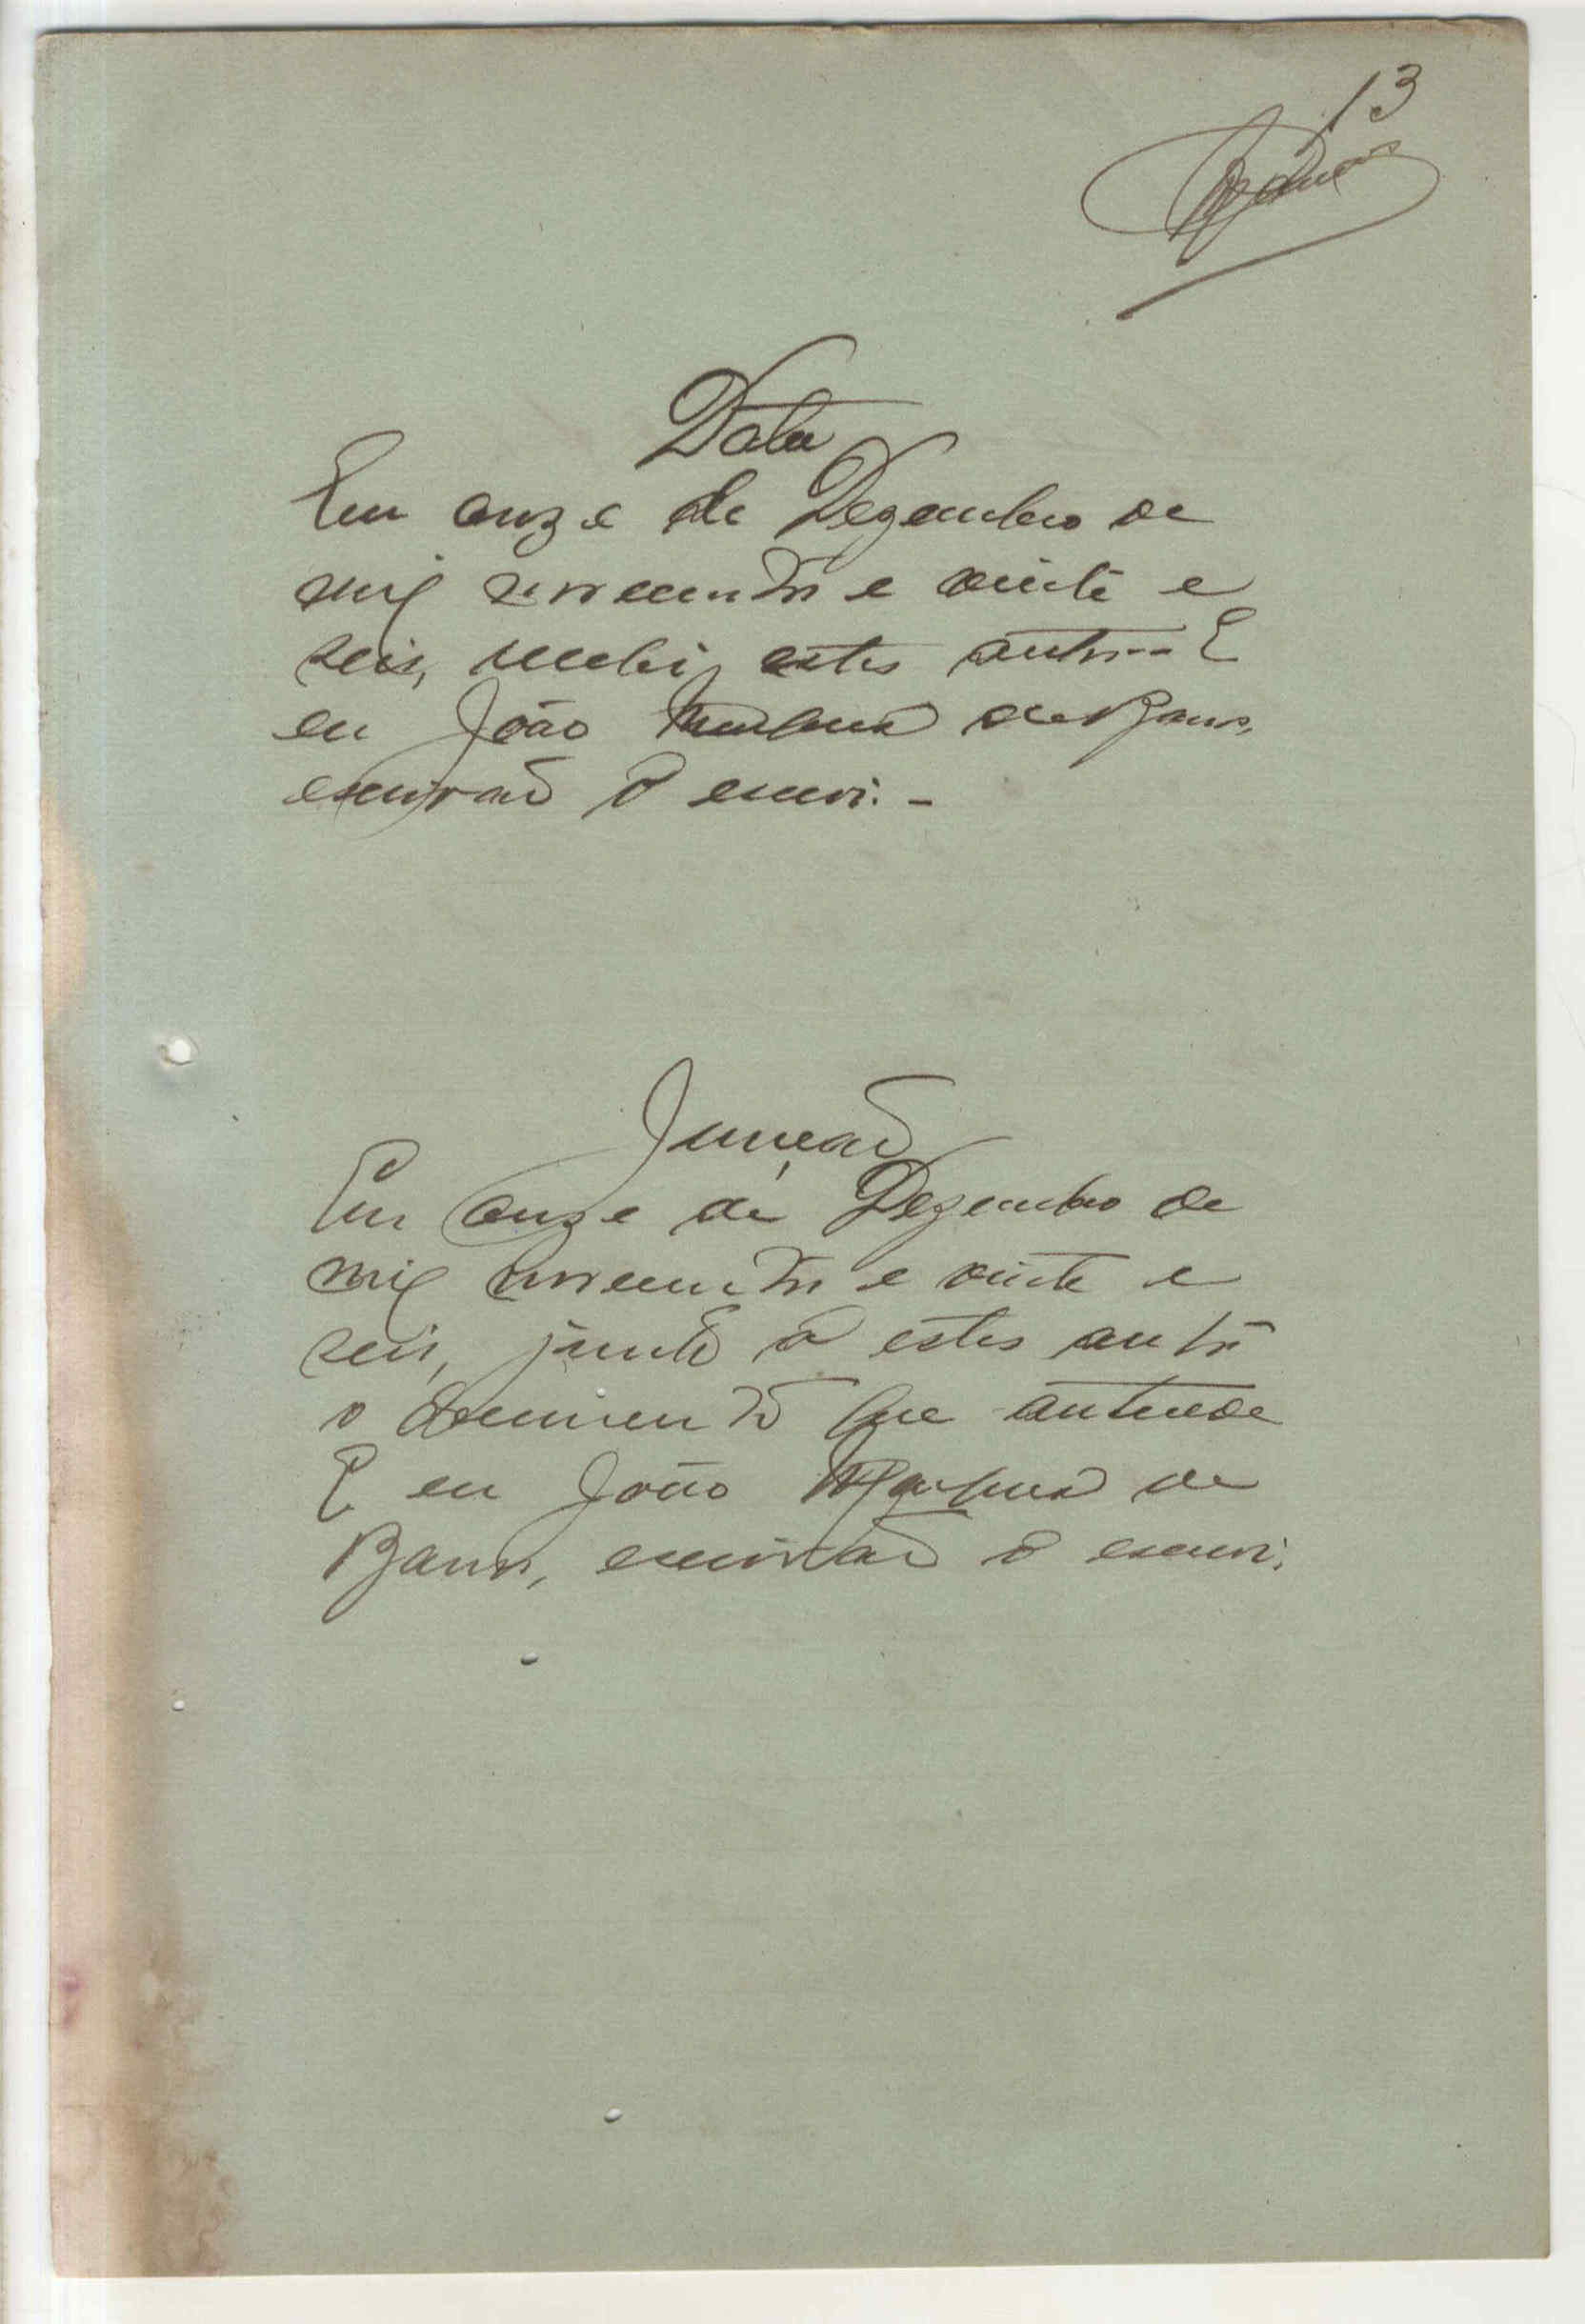 13
Data
Em onze de Dezembro de
mil novecentos e vinte e
seis, recebi estes autos.-- E
eu João de Barros,
escrivão o escrevi. -
Juncção
Em onze de Dezembro de
mil novecentos e vinte e
seis, junto a estes autos
o documento que antecede
E eu João de
Barros, escrivão o escrevi.